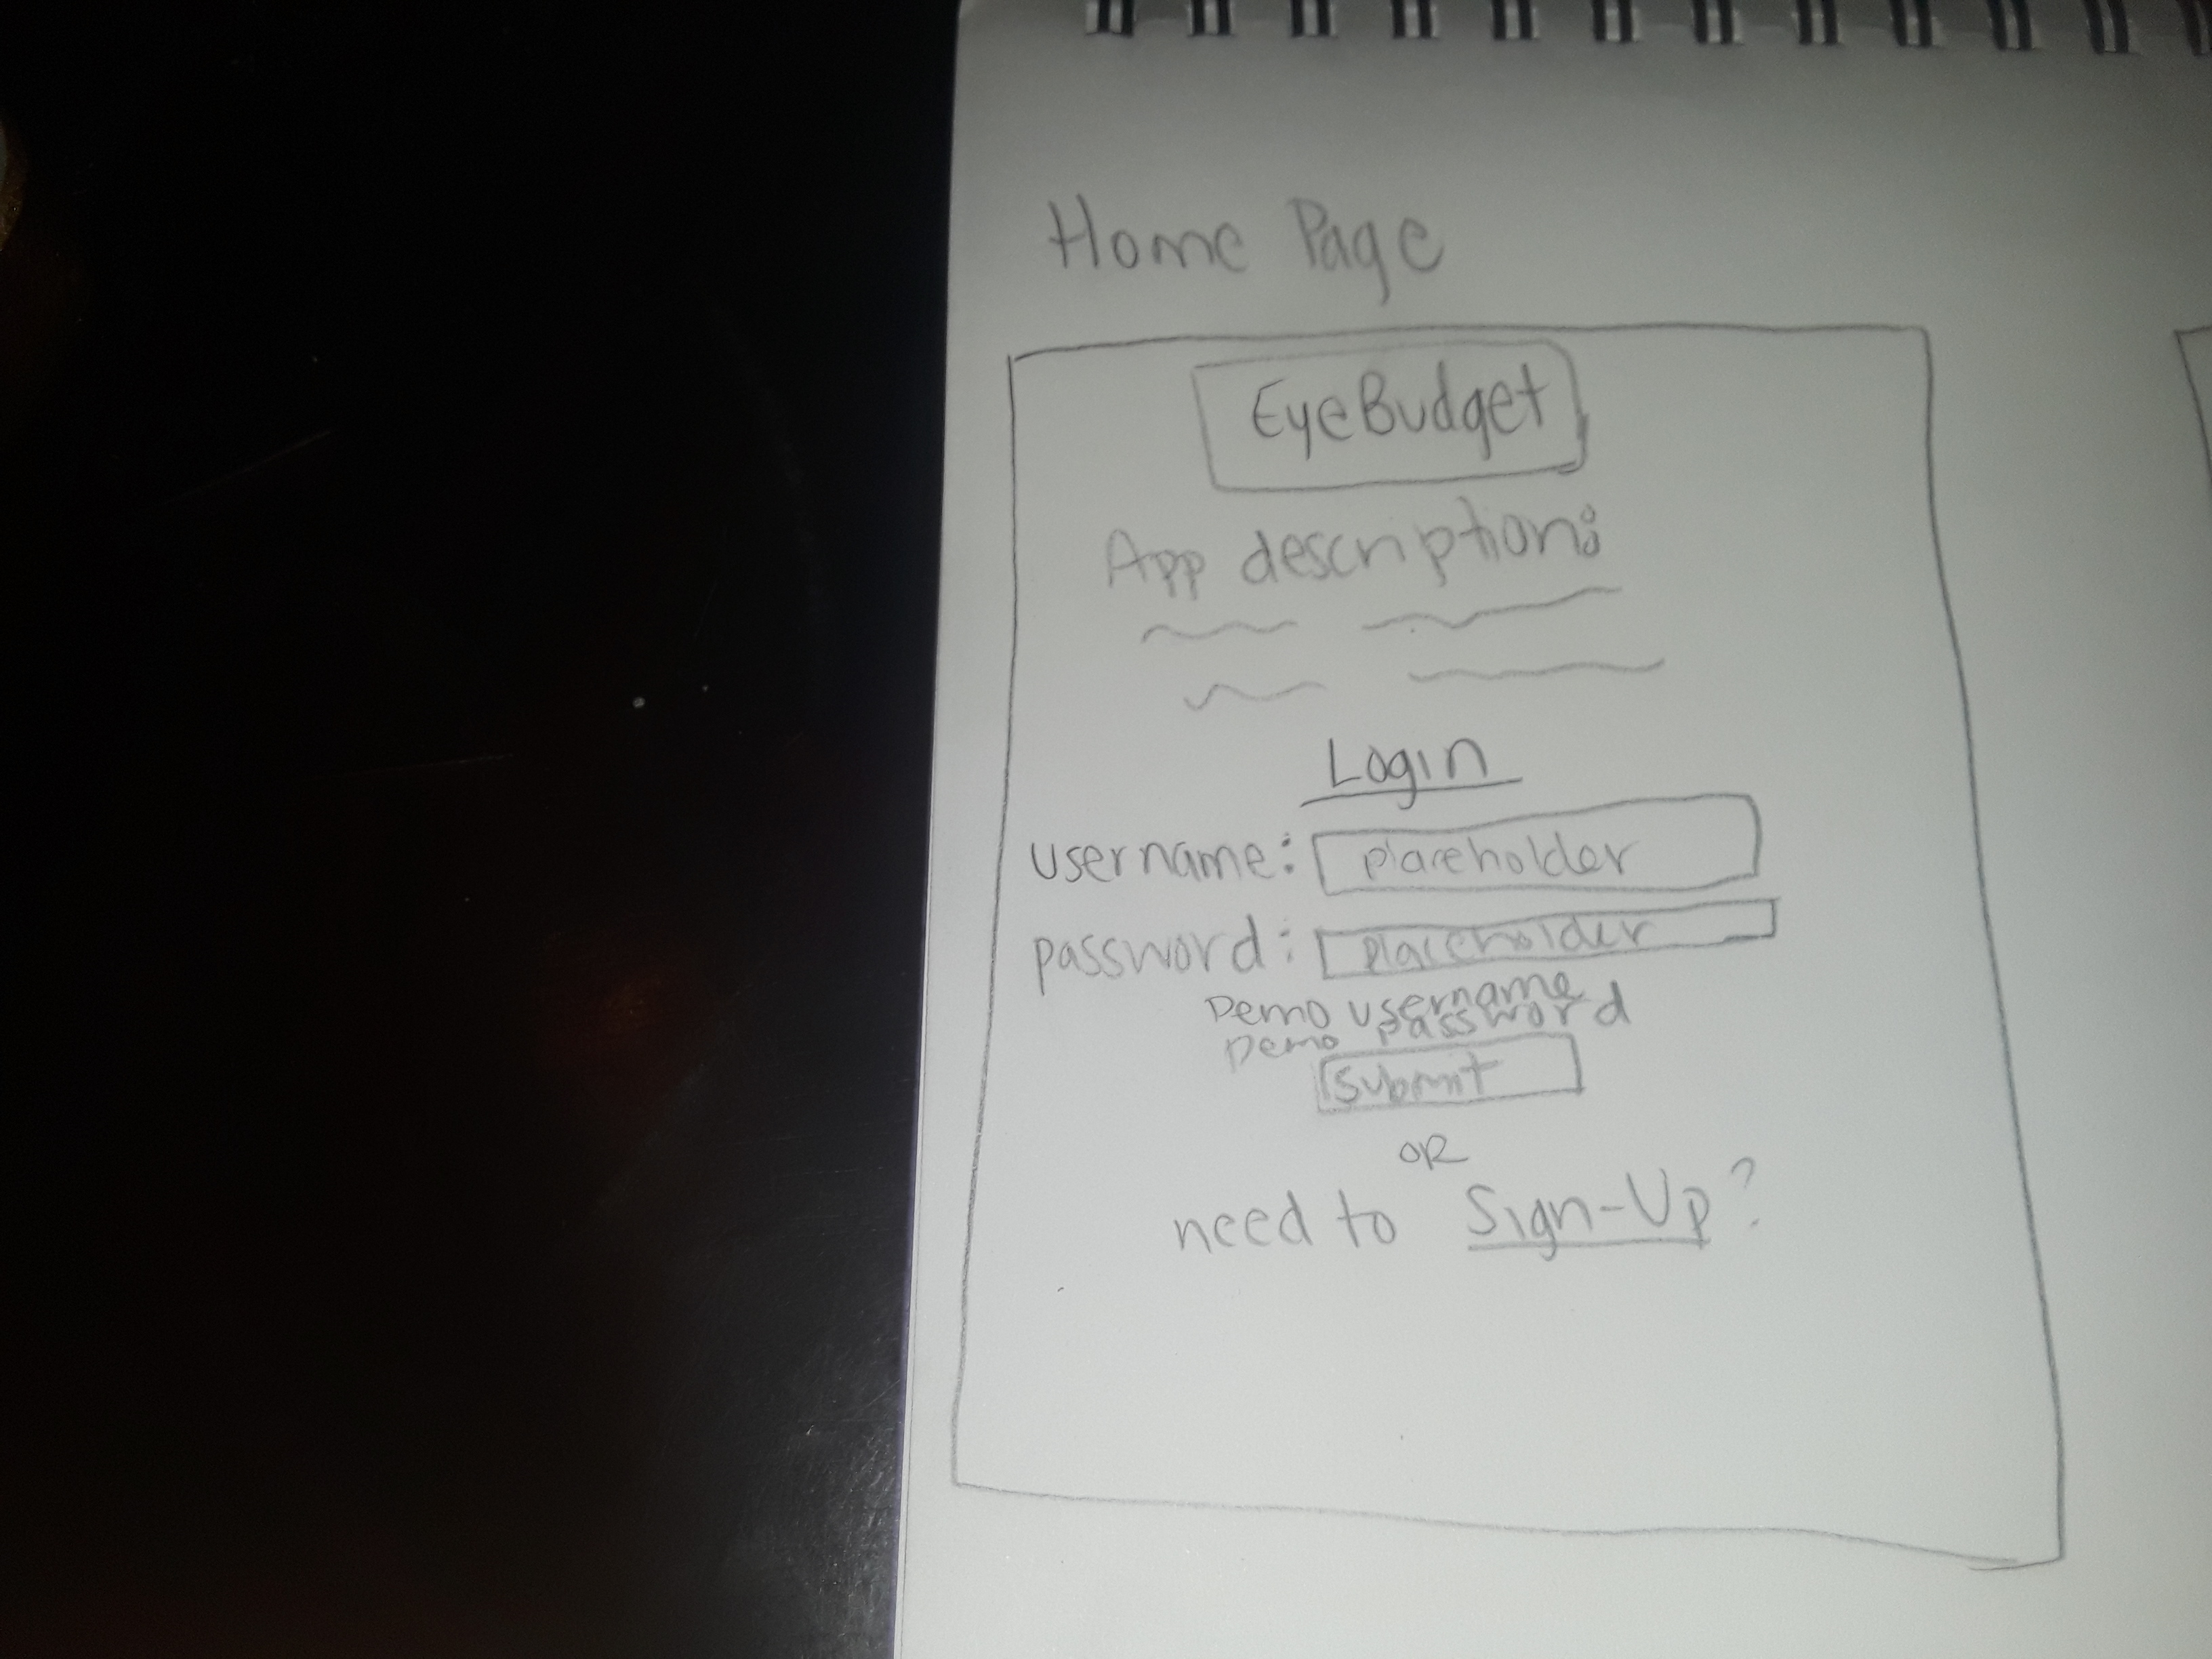 Home Page
EyeBudget
App description:
Login
username: placeholder
password: placeholder
Demo username
Demo password
Submit
OR
need to Sign-Up?